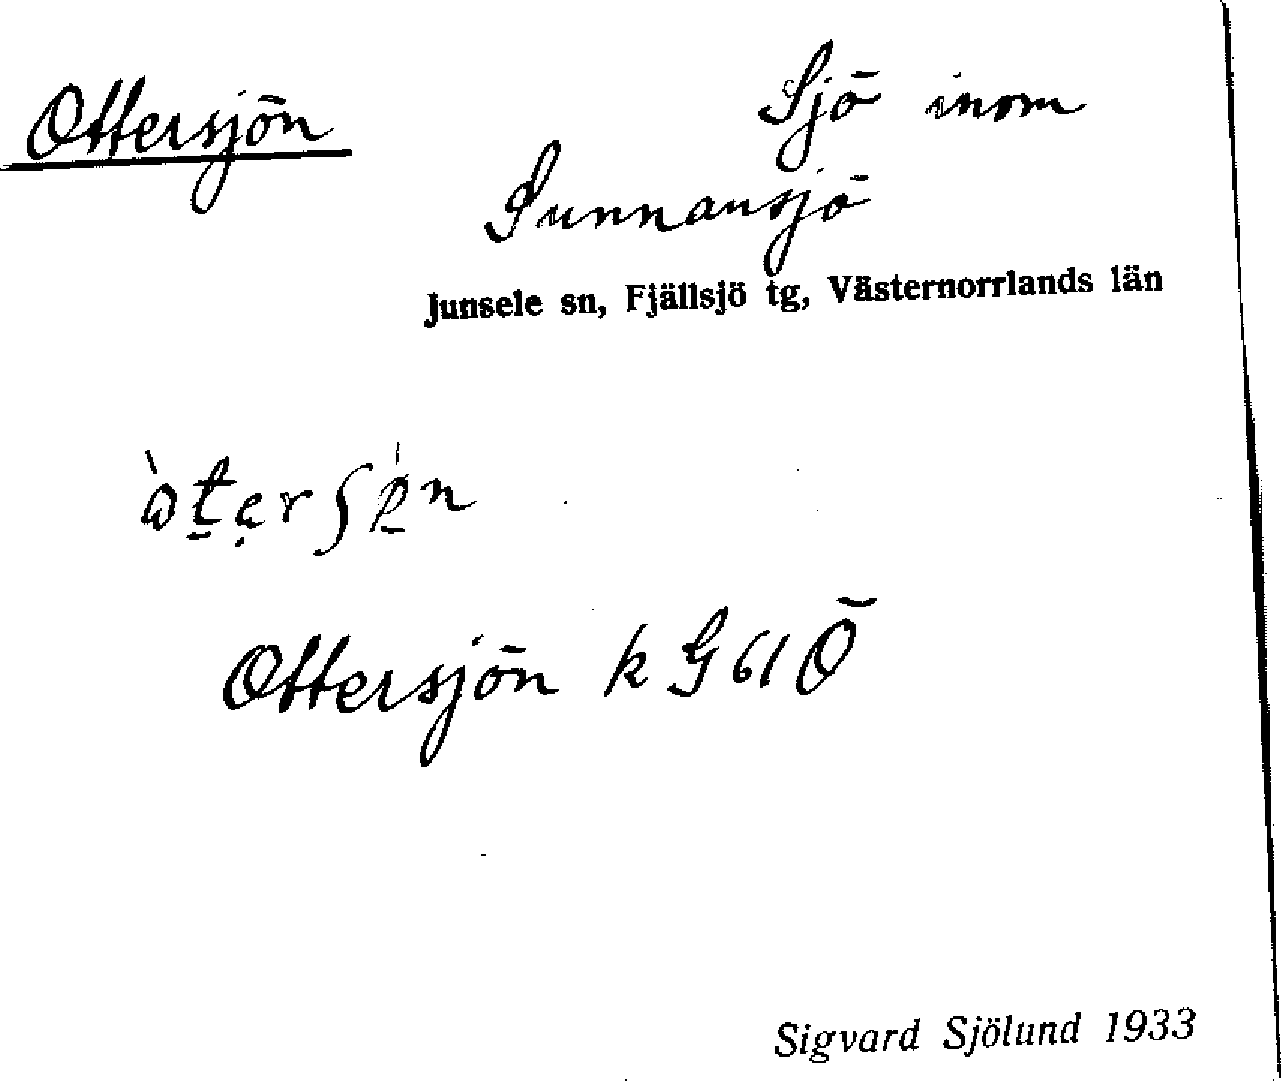 Ottersjön
Sjö inom
Sunnansjö
Junsele sn, Fjällsjö tg, Västernorrlands län
Ottersjön k G 61 Ö
Sigvard Sjölund 1933